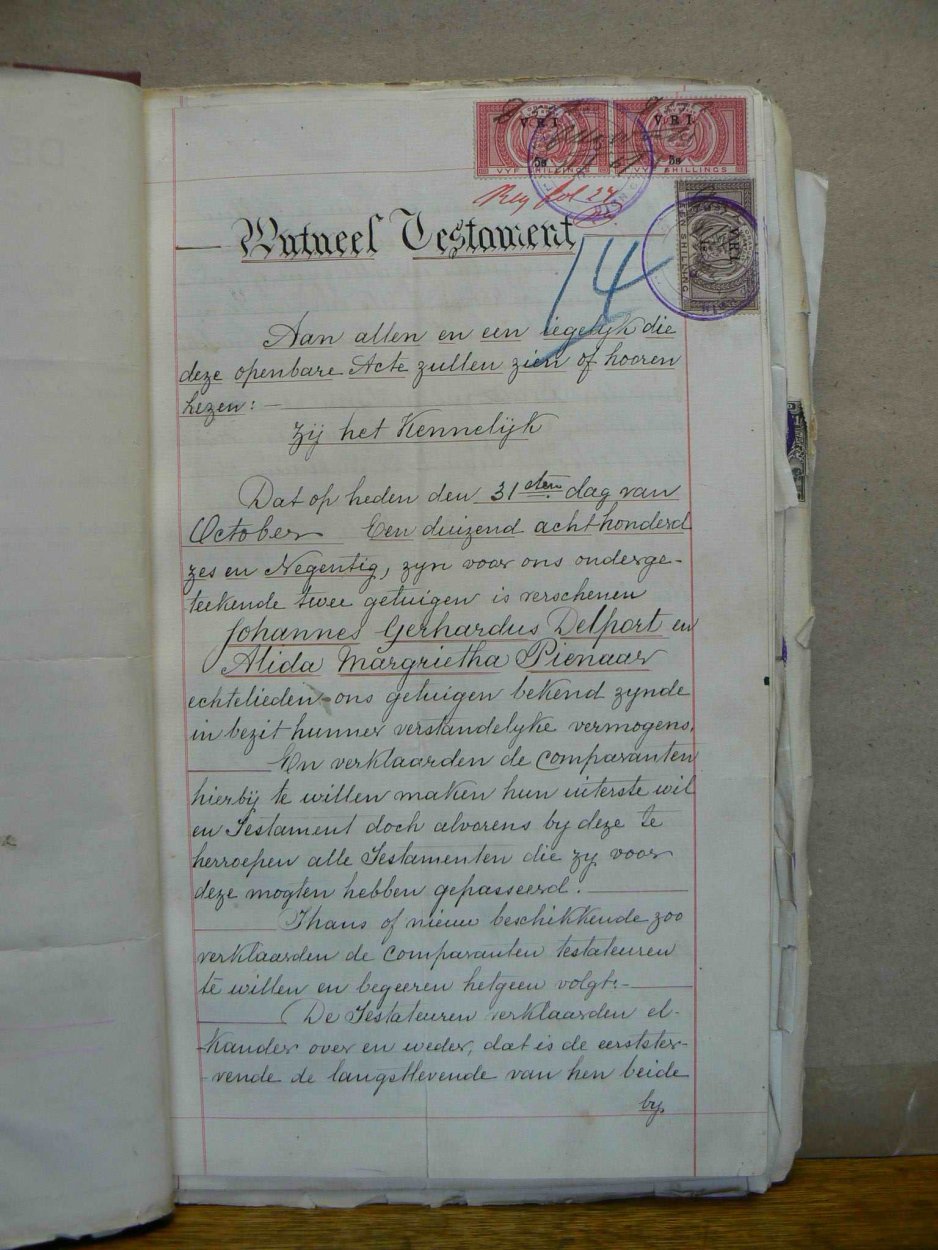 V.R.I. V.R.I.
5s 5s
VYF SHILLINGS VYF SHILLINGS
Reg fol 27
V.R.I.
Mutueel Testament
14
Aan allen en een iegelijk die
deze openbare Acte zullen zien of hooren
Lezen:—
Zij het Kennelijk
Dat op heden den 31sten dag van
October Een duizend acht honderd
zes en Negentig, zyn voor ons onderge-
teekende twee getuigen is verschenen
Johannes Gerhardus Delport en
Alida Margrietha Pienaar
echtelieden ons getuigen bekend zynde
in bezit hunner verstandelyke vermogens.
En verklaarden de comparanten
hierbij te willen maken hun uiterste wil
en Testament doch alvorens by deze te
herroepen alle Testamenten die zy voor
deze mogten hebben gepasseerd.
Thans of nieuw beschikkende zoo
verklaarden de comparanten testateuren
te willen en begeeren hetgeen volgt:—
De Testateuren verklaarden el-
kander over en weder, dat is de eerstster-
vende de langstlevende van hen beide
by